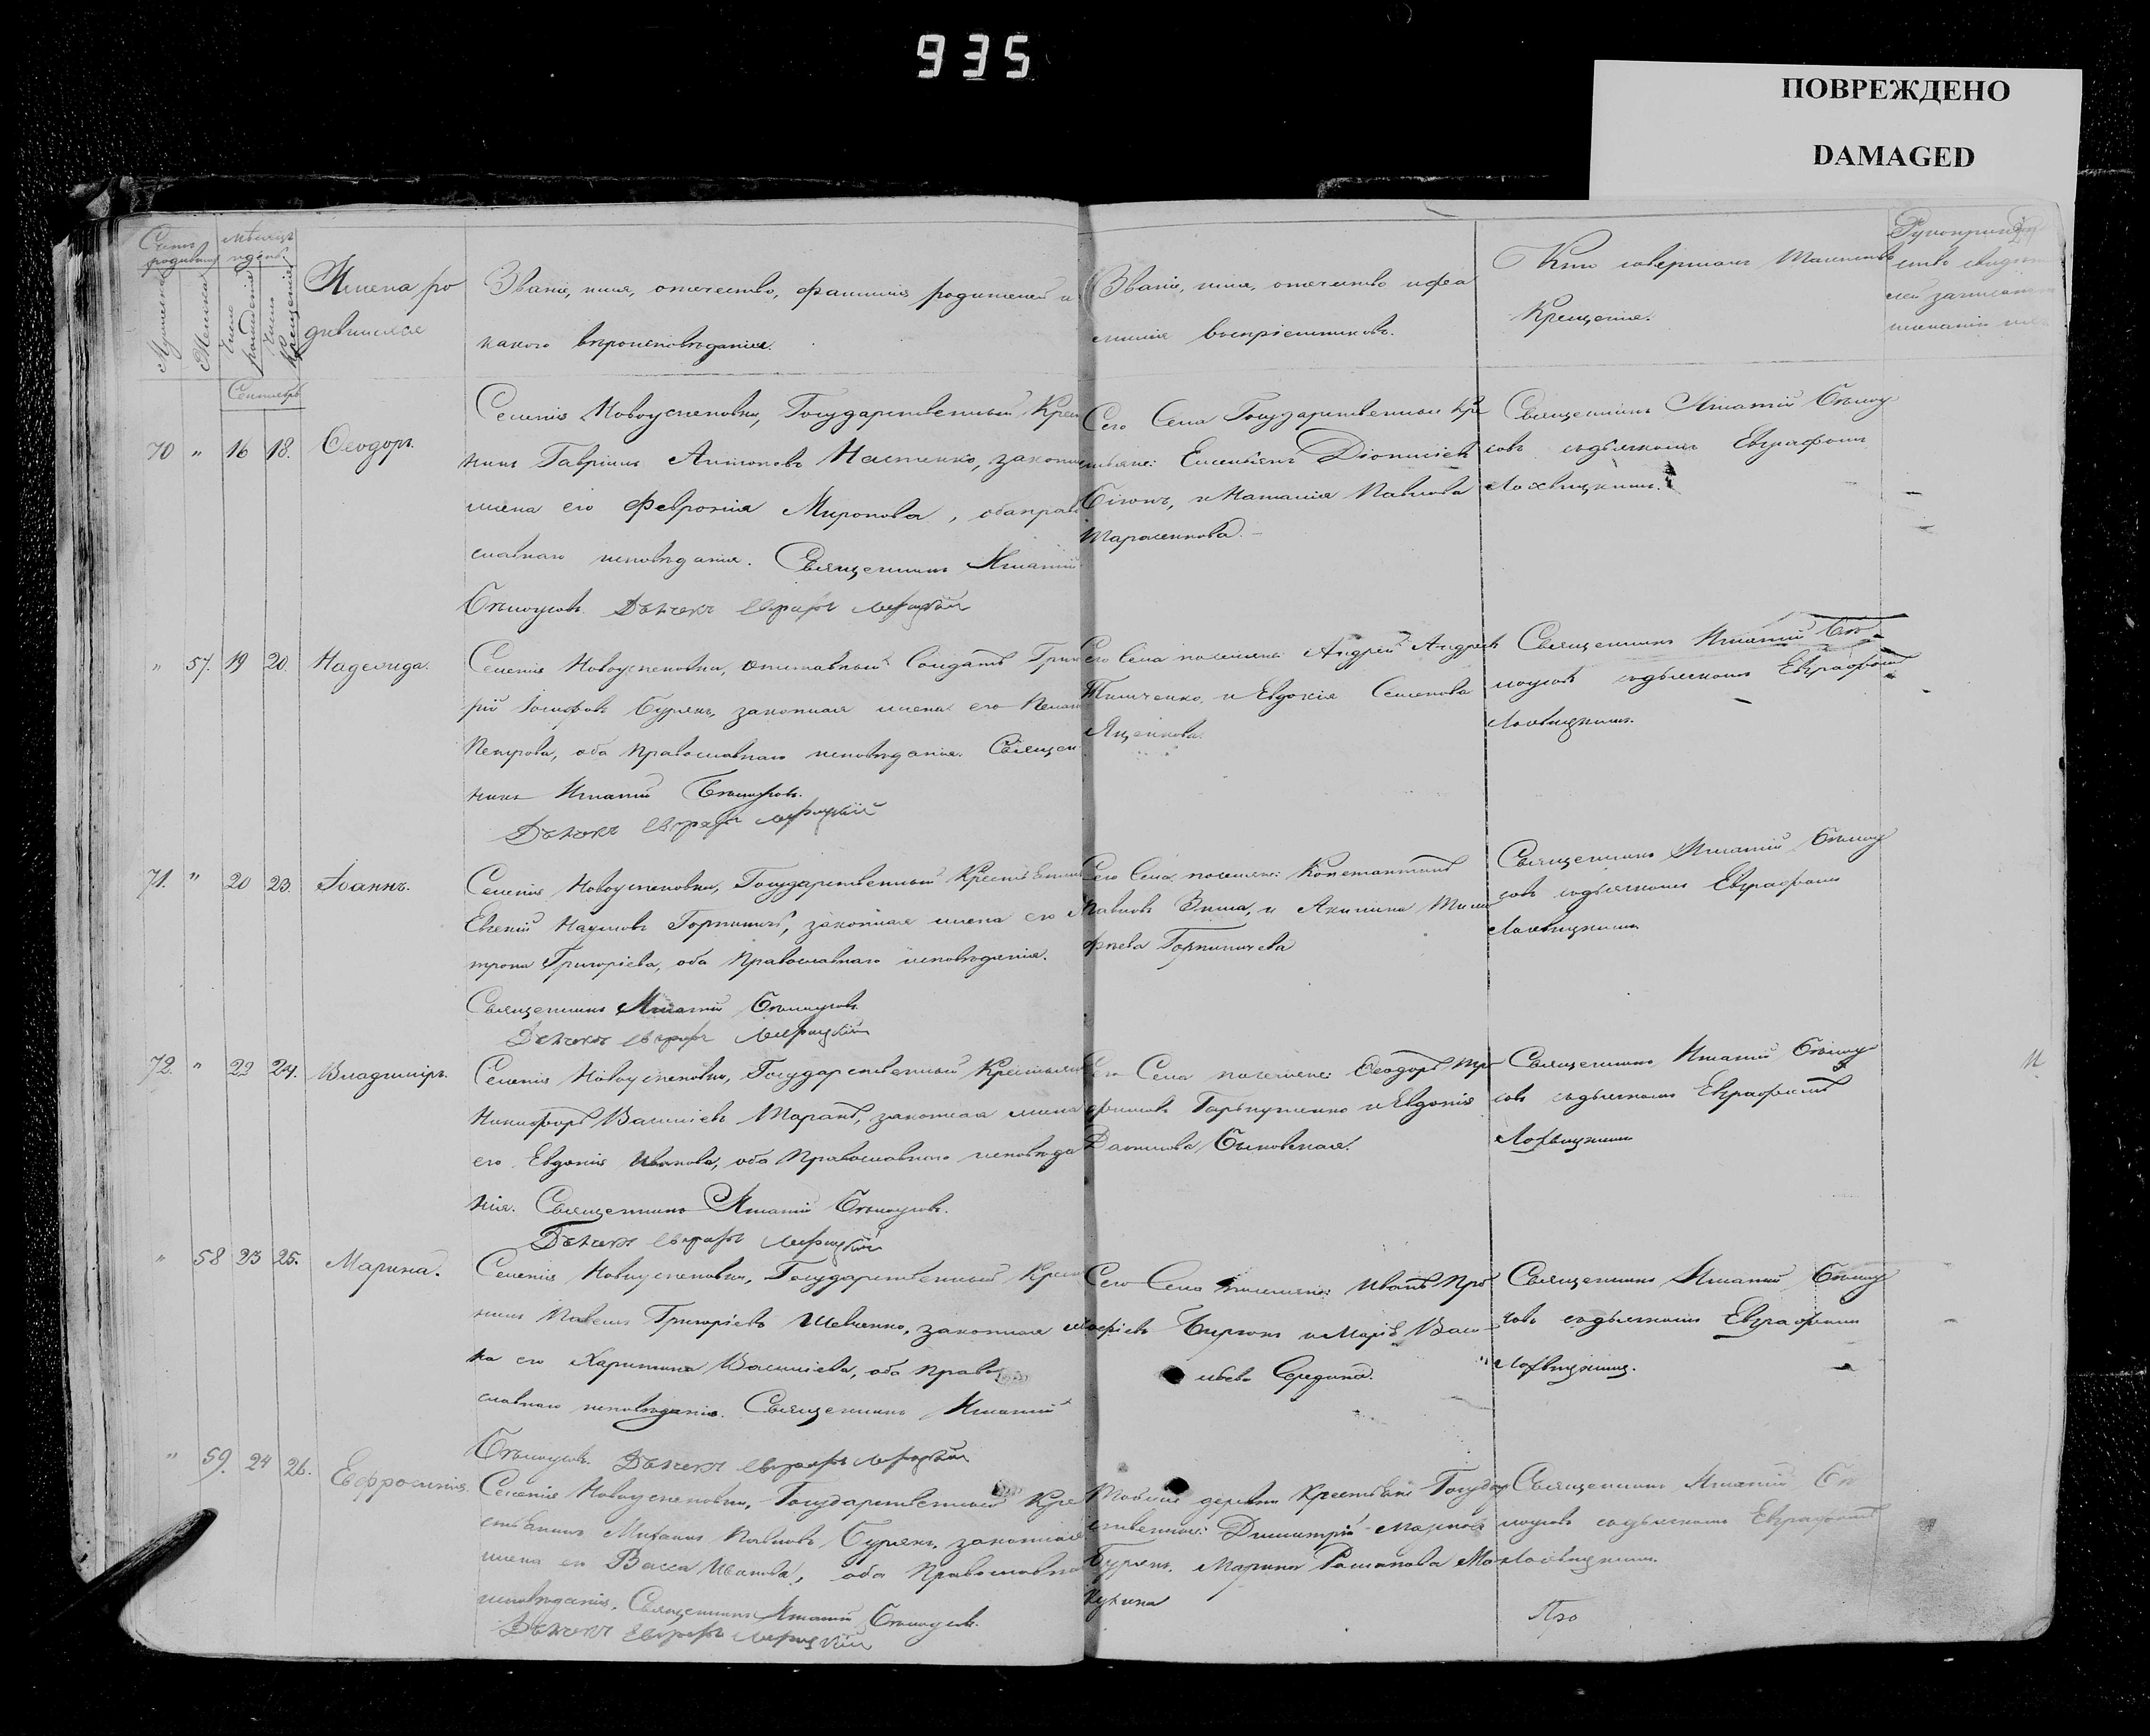 935
ПОВРЕЖДЕНО
DAMAGED
Счетъ родившихся
Мѣсяцъ и день
Мужеска
Женска
Число рожденія
Число крещенія
Имена ро
дившихся
Званіе, имя, отечество, фамилія родителей и
какого вѣроисповѣданія.
Званіе, имя, отечество и фа
милія воспріемниковъ.
Кто совершалъ Таинство
Крещенія.
Рукоприклад
ство свидѣте
лей записи
Сентябрь
70 " 16 18. Ѳеодоръ.
Селенія Новоуспеновки, Государственный Крес
нинъ Гавріилъ Антоновъ Настенко, законная
жена его Февронія Миронова, оба право
славнаго исповѣданія. Священникъ Игнатій
Бѣлоусовъ. Дьячекъ Евграфъ Лохвицкій
Сего Села Государственные Кре
стьяне: Емельянъ Діонисіев
и Наталія Павлова
Тарасенкова.
Священникъ Игнатій Бѣлоу
совъ съ дьячкомъ Евграфомъ
Лохвицкимъ.
" 57. 19 20. Надежда.
Селенія Новоуспеновки, отставный Солдатъ Григо
рій Іосифовъ Бурякъ, законная жена его Пелагія
Петрова, оба Православнаго исповѣданія. Священ
никъ Игнатій Бѣлоусовъ.
Дьячекъ Евграфъ Лохвицкій
Сего Села поселяне: Андрей Андреев
Тимченко, и Евдокія Семенова
Яценкова.
Священникъ Игнатій Бѣ
лоусовъ съ дьячкомъ Евграфомъ
Лохвицкимъ.
71. " 20 23. Іоаннъ.
Селенія Новоуспеновки, Государственный Крестьянинъ
Евгеній Наумовъ Горпиничъ, законная жена его Ма
трона Григоріева, оба Православнаго исповѣданія.
Священникъ Игнатій Бѣлоусовъ.
Дьячекъ Евграфъ Лохвицкій
Сего Села поселяне: Константинъ
Павловъ и Акилина Тимо
фѣева Горпиничева
Священникъ Игнатій Бѣлоу
совъ съ дьячкомъ Евграфомъ
Лохвицкимъ
72. " 22 24. Владиміръ.
Селенія Новоуспеновки, Государственный Крестьянинъ
Никифоръ Василіевъ Таранъ, законная жена
его Евдокія Иванова, оба Православнаго исповѣда
нія. Священникъ Игнатій Бѣлоусовъ.
Дьячекъ Евграфъ Лохвицкій
Сего Села поселяне: Ѳеодоръ Тро
фимовъ и Евдокія
Данилова
Священникъ Игнатій Бѣлоу
совъ съ дьячкомъ Евграфомъ
Лохвицкимъ
" 58 23 25. Марина.
Селенія Новоуспеновки, Государственный Крес
нинъ Павелъ Григоріевъ Шевченко, законная же
на его Харитина Василіева, оба Право
славнаго исповѣданія. Священникъ Игнатій
Бѣлоусовъ. Дьячекъ Евграфъ Лохвицкій
Сего Села поселяне: Иванъ Про
кофіевъ и Марія Васи
льева Середина.
Священникъ Игнатій Бѣлоу
совъ съ дьячкомъ Евграфомъ
Лохвицкимъ.
" 59. 24 26. Евфросинія.
Селенія Новоуспеновки, Государственный Кре
стьянинъ Михаилъ Павловъ Бурякъ, законная
жена его Васса Иванова, оба Православнаго
исповѣданія. Священникъ Игнатій Бѣлоусовъ.
Дьячекъ Евграфъ Лохвицкій
деревни Крестьяне Государ
ственные: Димитрій Марков
Бурякъ, Марина Романова
Священникъ Игнатій Бѣ
лоусовъ съ дьячкомъ Евграфомъ
Лохвицкимъ.